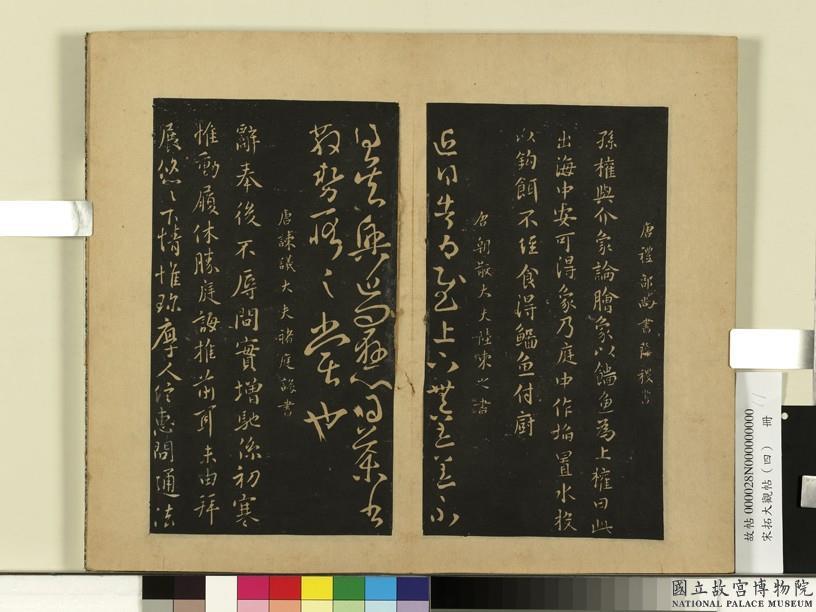 唐禮部尚書薛稷書
孫權與介象論膾象以鯔魚為上權曰此
出海中安可得象乃庭中作埳置水投
以鈎餌不經食得鯔魚付厨
唐朝散大夫陸柬之書
近得告為慰上下無恙
得 與
散勢 之當也
唐諫議大夫褚庭誨書
辭奉後不辱問實增馳係初寒
惟動履休勝庭誨推前耳未由拜
展悠〻下情惟珍厚人信惠問通法
故帖 000028N000000000
宋拓大觀帖（四） 冊
11
國立故宮博物院
NATIONAL PALACE MUSEUM